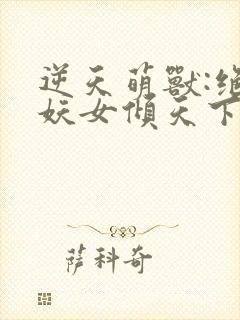 逆天萌獸:絕
妖女傾天下
薩科奇